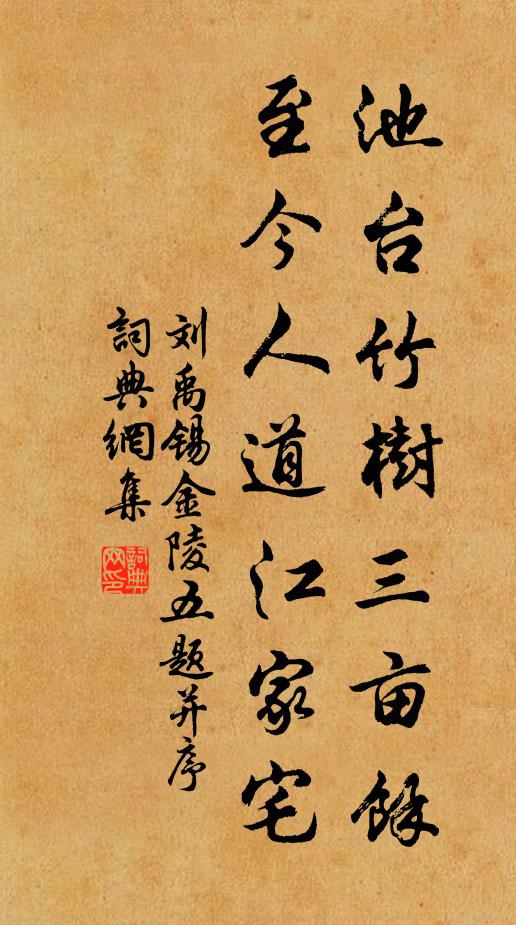 池台竹樹三亩餘
至今人道江家宅
刘禹锡金陵五题并序
詞典網集
詞典网印